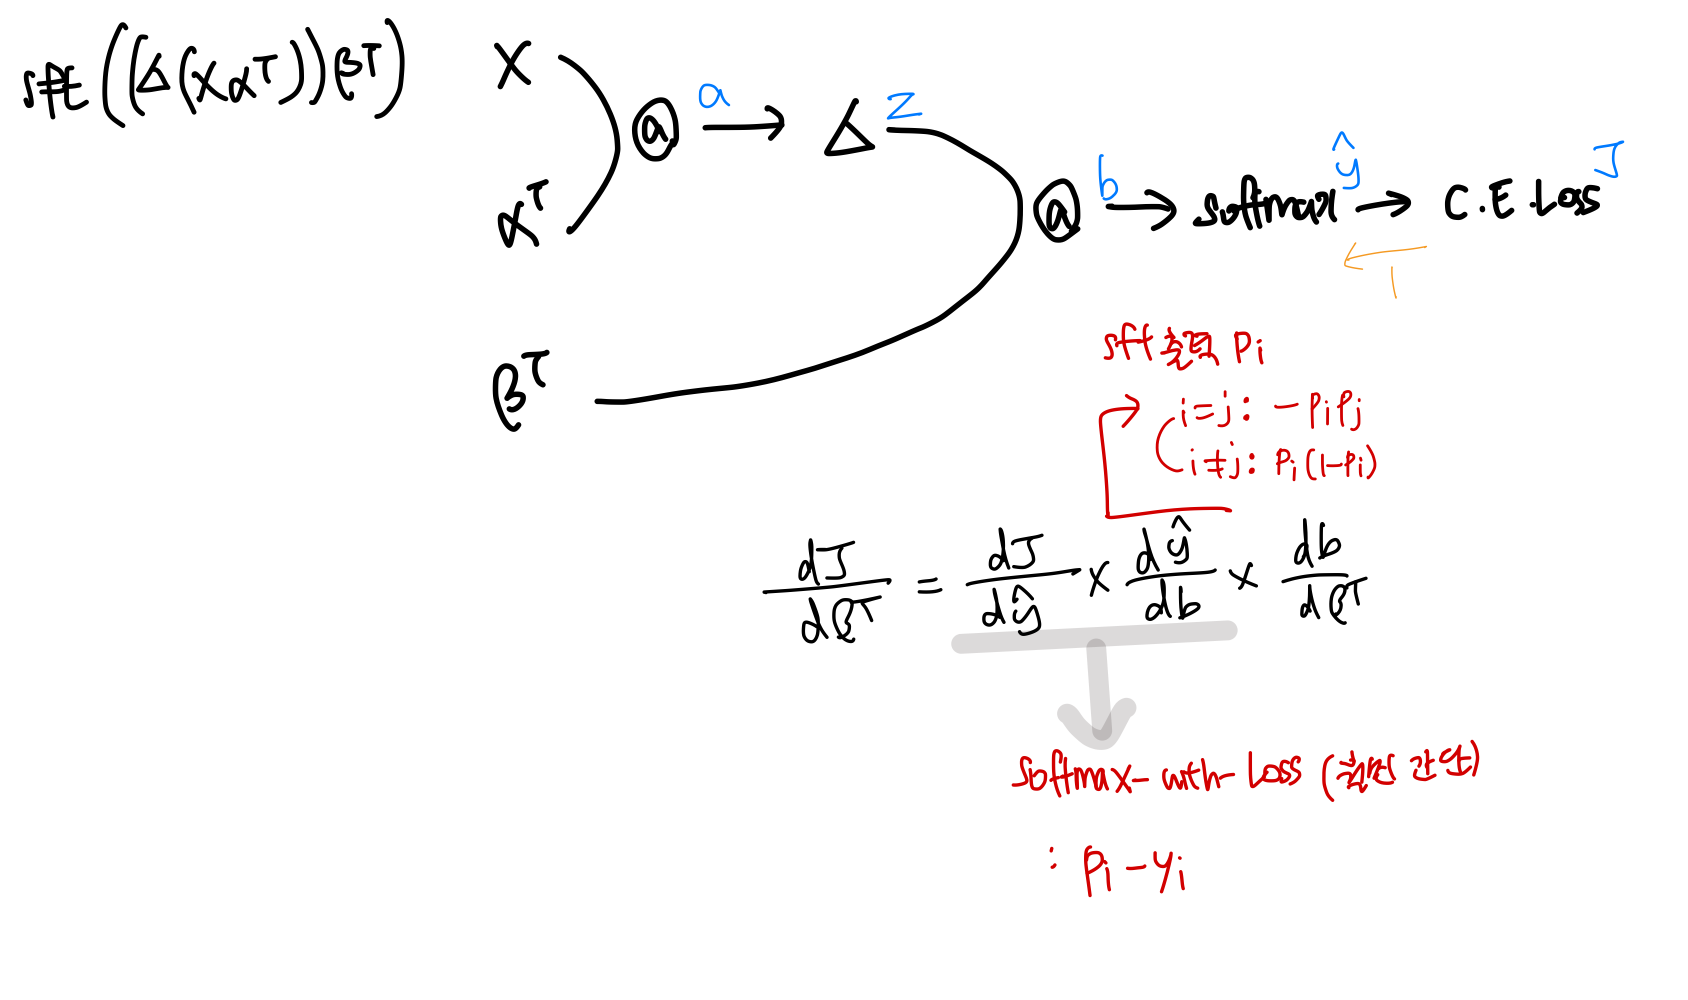 sft((Δ(Xαᵀ))βᵀ)
X
@ a → Δ z
αᵀ
@ b → softmax ŷ → C.E.Loss J
1
βᵀ
sft 출력 Pi
i=j: -PiPj
i≠j: Pi(1-Pi)
dJ/dβᵀ = dJ/dŷ × dŷ/db × db/dβᵀ
softmax-with-Loss (훨씬 간단)
: Pi-yi